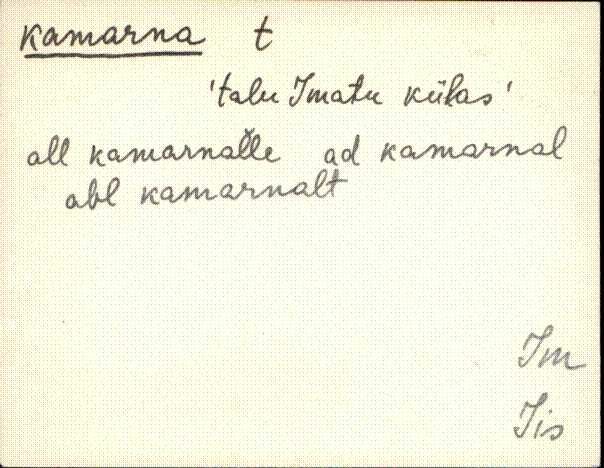 kamarna t
'talu Imatu külas'
all kamarnalle ad kamarnal
abl kamarnalt
Im
Iis